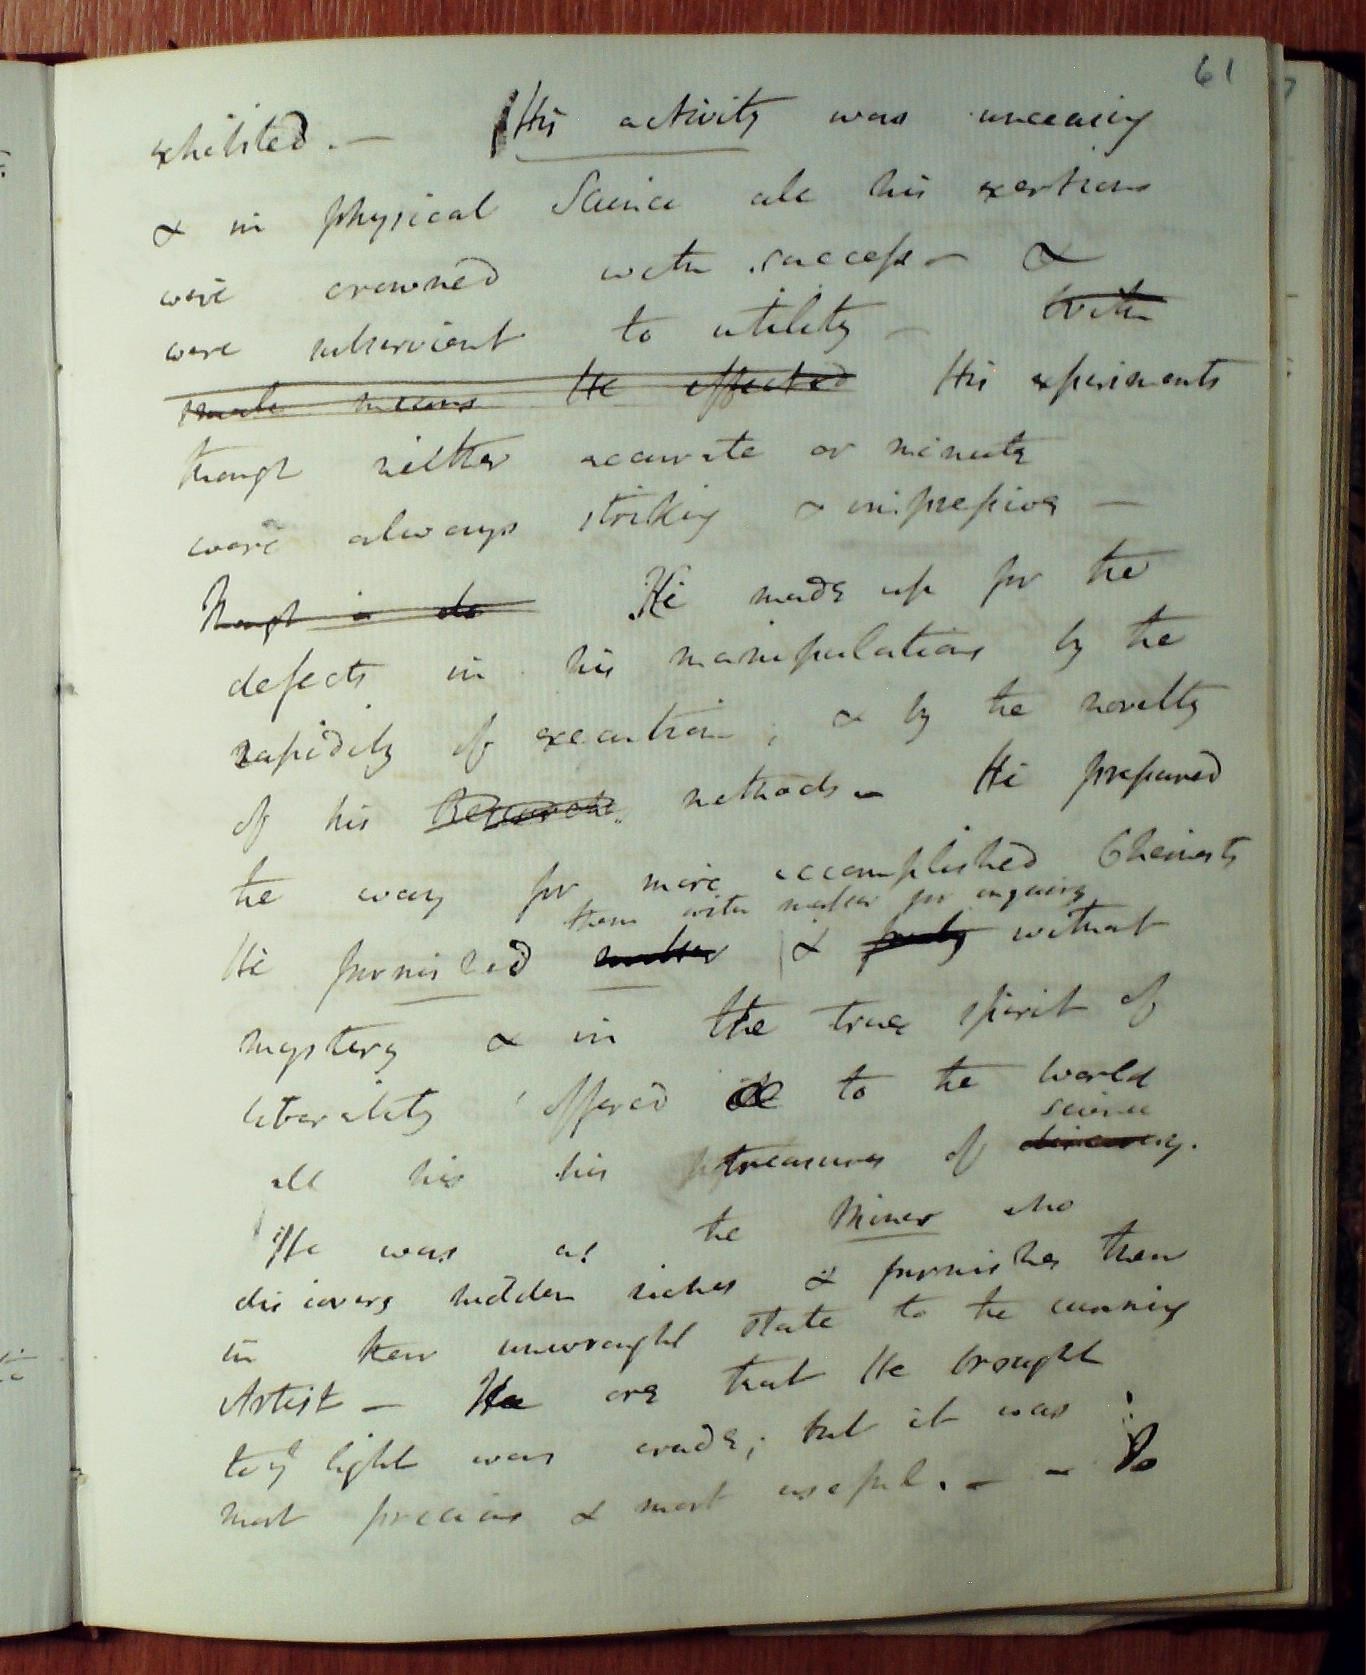 61
exhibited. — His activity was unceasing
& in physical Science all his exertions
were crowned with success — &
were subservient to utility — With
small means He effected His experiments
though neither accurate or minute
were always striking & impressive —
Though in do He made up for the
defects in his manipulations by the
rapidity of execution; & by the novelty
of his methods — He prepared
the way for more accomplished Chemists
them with matter for enquiry
He furnished matter & without
mystery & in the true spirit of
liberality offered to the world
science
all his his treasures of discovery.
He was as the Miner who
discovers hidden riches & furnishes them
in their unwrought state to the cunning
Artist — The ore that He brought
to ye light was crude; but it was
most precious & most useful. — –